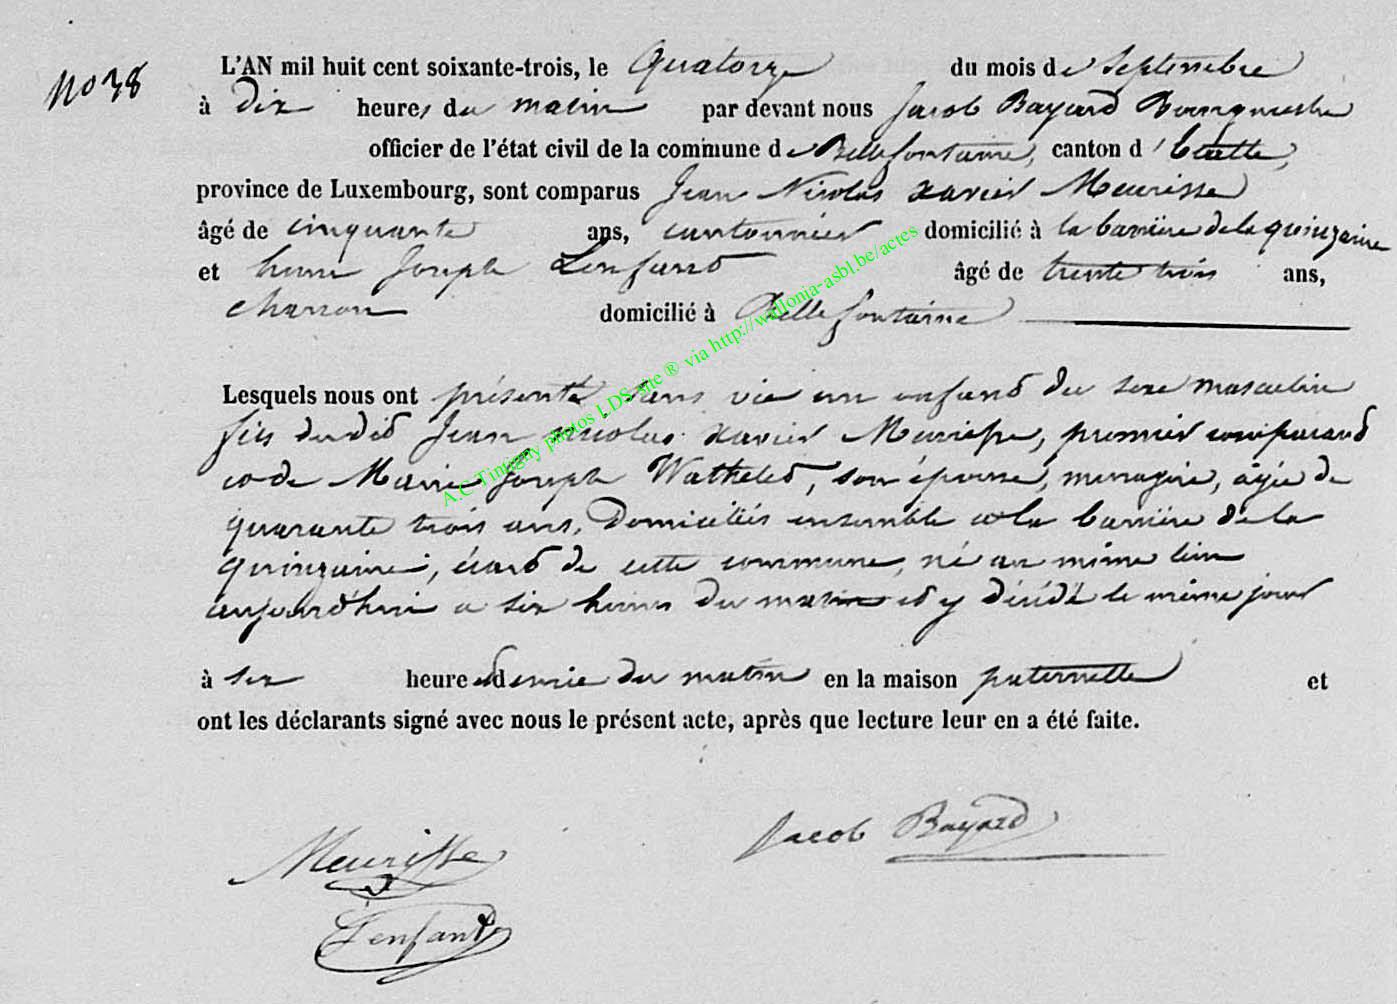 No 38
L'AN mil huit cent soixante-trois, le Quatorze du mois de Septembre
à dix heures du matin par devant nous Jacob Bayard Bourgmestre
officier de l'état civil de la commune de Bellefontaine, canton d'Etalle,
province de Luxembourg, sont comparus Jean Nicolas Xavier Meurisse
âgé de cinquante ans, cantonnier domicilié à la barrière de la quinzaine
et henri Joseph Lenfant âgé de trente trois ans,
charron domicilié à Bellefontaine
Lesquels nous ont présenté sans vie un enfant du sexe masculin
fils dudit Jean nicolas xavier Meurisse, premier comparant
et de Marie Joseph Wathelet, son épouse, menagère, âgée de
quarante trois ans, Domiciliés ensemble a la barrière de la
Quinzaine, écart de cette commune, né au même lieu
aujourd'hui a six heures du matin et y décédé le même jour
à six heure et demie du matin en la maison paternelle et
ont les déclarants signé avec nous le présent acte, après que lecture leur en a été faite.
Jacob Bayard
Meurisse
Lenfant
A.C Tintigny photos LDS site ® via http://wallonia-asbl.be/actes